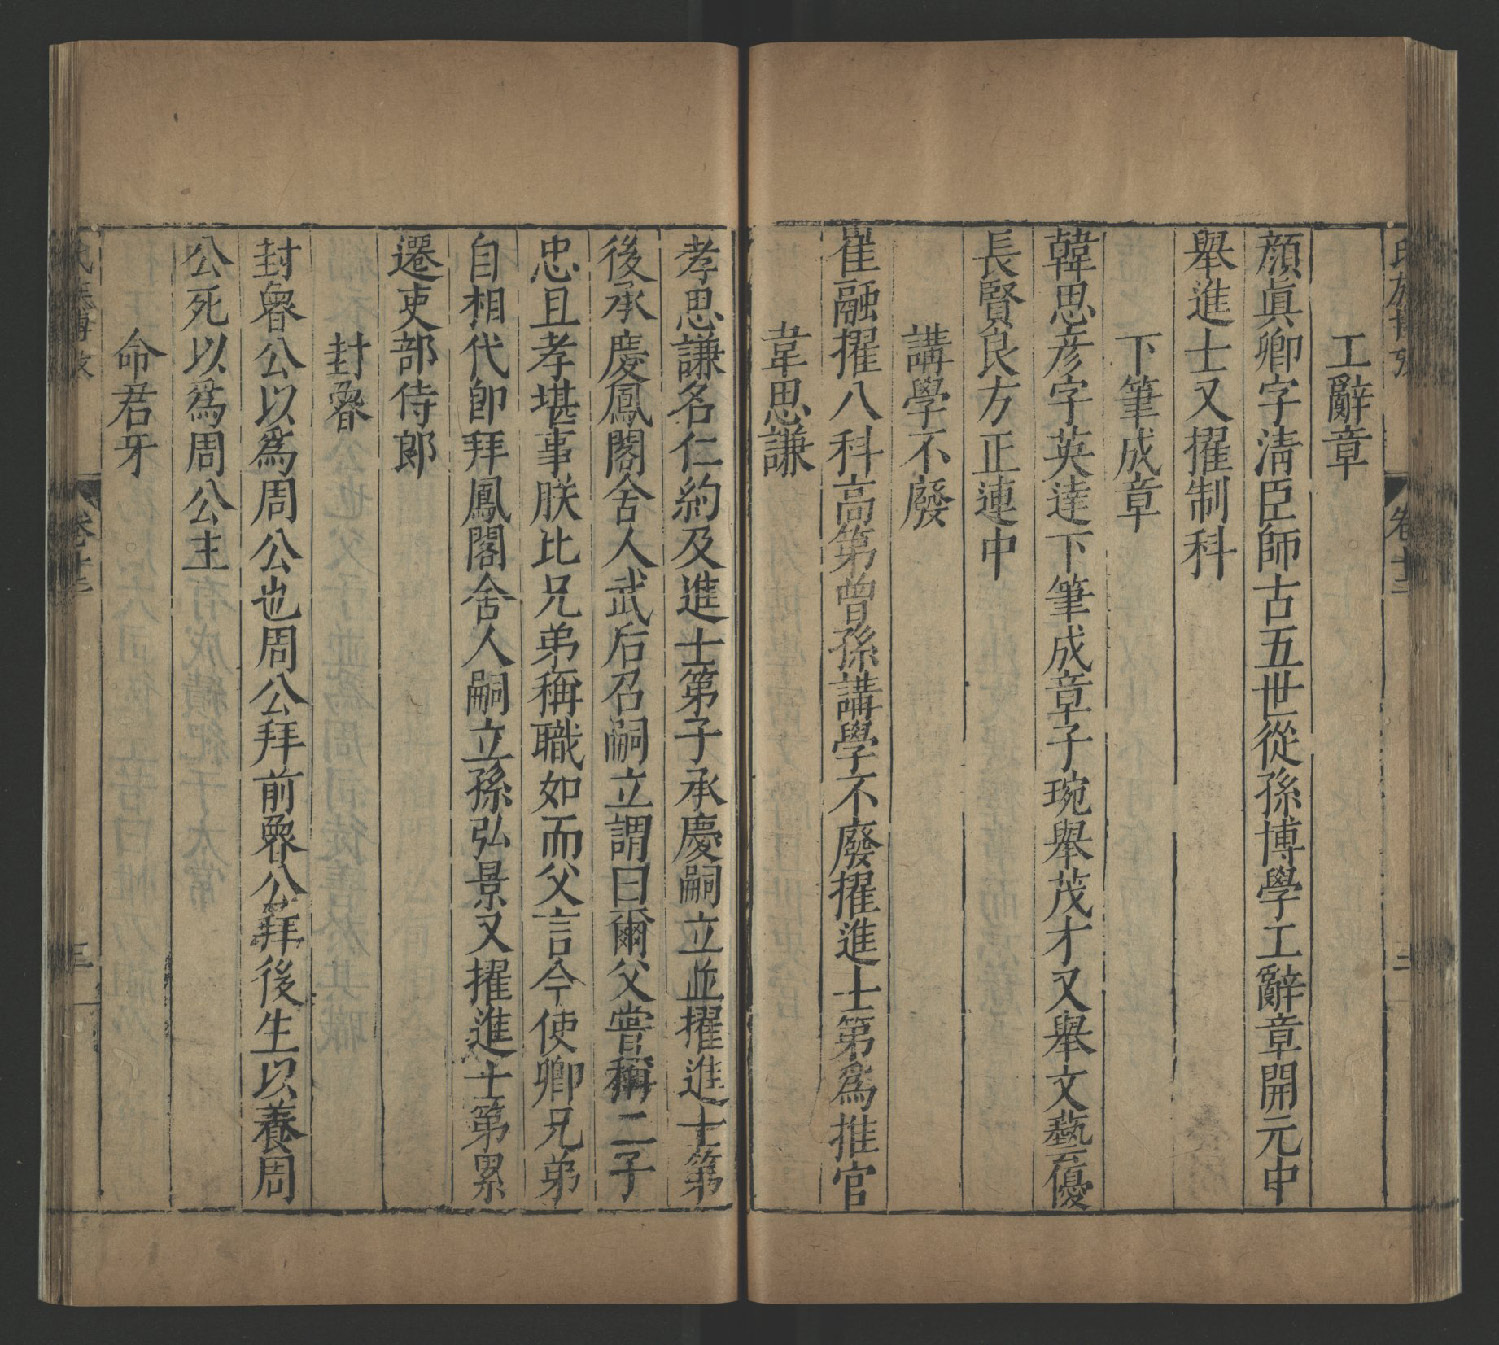 工辭章
顏眞卿字清臣師古五世從孫博學工辭章開元中
舉進士又擢制科
下筆成章
韓思彥字英逹下筆成章子琬舉茂才又舉文藝優
長賢良方正連中
講學不廢
崔融擢八科高第曾孫講學不廢擢進士第爲推官
韋思謙
孝思謙名仁約及進士第子承慶嗣立並擢進士第
後承慶鳳閣舍人武后召嗣立謂曰爾父嘗稱二子
忠且孝堪事朕比兄弟稱職如而父言今使卿兄弟
自相代卽拜鳳閣舍人嗣立孫弘景又擢進士第累
遷吏部侍郎
封魯
封魯公以爲周公也周公拜前魯公拜後生以養周
公死以爲周公主
命君牙
卷十三
三